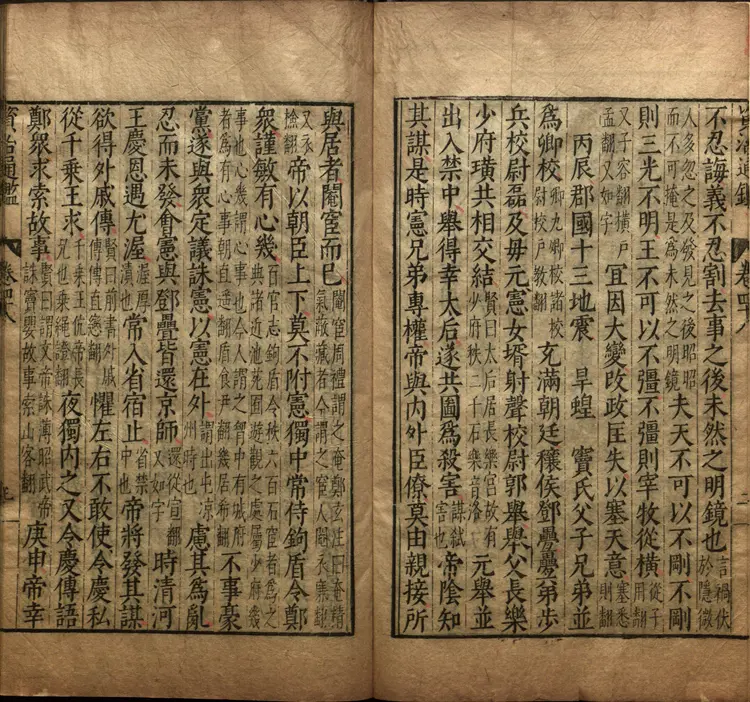 不忍誨義不忍割去事之後未然之明鏡也言禍伏於隱微
人多忽之及發見之後昭昭而不可掩是爲未然之明鏡夫天不可以不剛不剛
則三光不明王不可以不彊不彊則宰牧從橫從子用翻
又子容翻橫戶孟翻又如字宜因大變改政匡失以塞天意塞悉則翻
丙辰郡國十三地震 旱蝗 竇氏父子兄弟並
爲卿校卿九卿校諸校尉校戶教翻充滿朝廷穰侯鄧疊疊弟步
兵校尉磊及母元憲女壻射聲校尉郭舉舉父長樂
少府璜共相交結賢曰太后居長樂宮故有少府秩二千石樂音洛元舉並
出入禁中舉得幸太后遂共圖爲殺害謀弒害也帝陰知
其謀是時憲兄弟專權帝與內外臣僚莫由親接所
資治通鑑 卷四十八
與居者閹宦而已閹宦周禮謂之奄鄭玄注曰奄精氣蔽藏者今謂之宦人閹衣廉翻
又衣檢翻帝以朝臣上下莫不附憲獨中常侍鉤盾令鄭
衆謹敏有心幾百官志鉤盾令秩六百石宦者爲之典諸近池苑囿遊觀之處屬少府幾
事也心幾謂心事也今人謂之胷中有城府者爲有心事朝直遙翻盾食尹翻幾居希翻不事豪
黨遂與衆定議誅憲以憲在外謂出屯涼州時也慮其爲亂
忍而未發會憲與鄧疊皆還京師還從宣翻又如字時清河
王慶恩遇尤渥渥厚漬也常入省宿止省禁中也帝將發其謀
欲得外戚傳賢曰前書外戚傳傳直戀翻懼左右不敢使令慶私
從千乘王求千乘王伉帝長兄也乘繩證翻夜獨內之又令慶傳語
鄭衆求索故事賢曰謂文帝誅薄昭武帝誅竇嬰故事索山客翻庚申帝幸
資治通鑑 卷四八